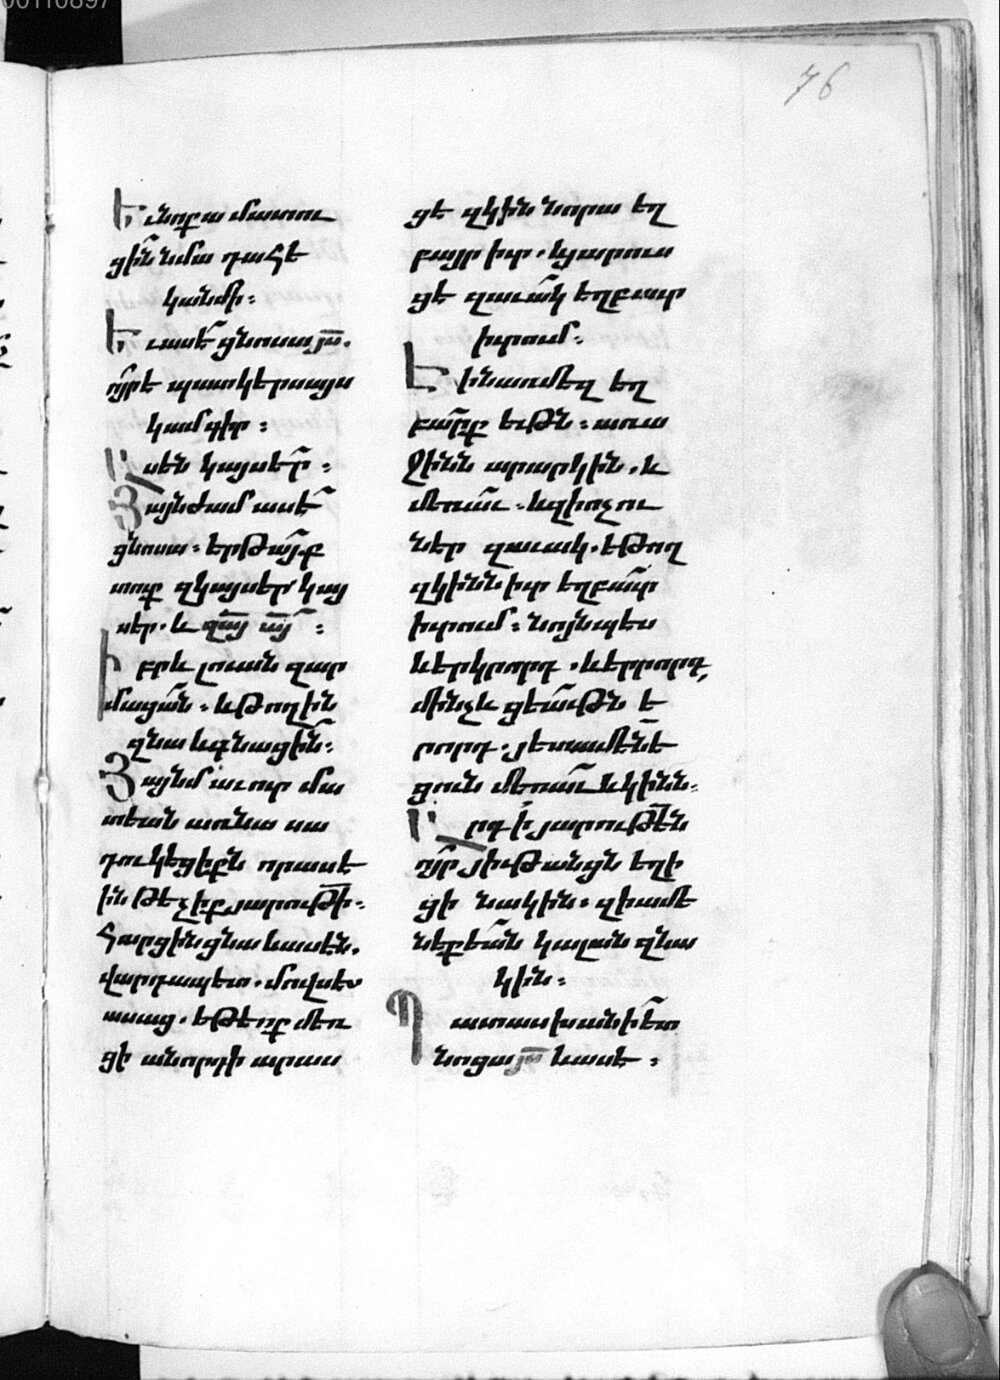 00110897
76
Եւ նոքա մատու
ցին նմա դահե
կանմի։
Եւ ասէ ցնոսա յս.
ոյր է պատկերս այս
կամ գիր։
Ասեն կայսեր։
Յայնժամ ասէ
ցնոսա. երթայք
տուք զկայսեր կայ
սեր. և զայ այ։
Իբրև լուան զար
մացան. և թողին
զնա և գնացին։
Յայնմ աւուր մա
տեան առ նա սա
դուկեցիքն որ ասէ
ին թե չիք յարութի։
հարցին ցնա և ասեն.
վարդապետ. մովսես
ասաց. եթե ոք մեռ
ցի անորդի արաս
ցե զկին նորա եղ
բայր իւր. և յարուս
ցե զաւակ եղբաւր
իւրում։
Է ին առ մեզ եղ
բարք եւթն։ առա
ջինն արար կին. և
մեռաւ. և զի ոչ ու
ներ զաւակ. եթող
զկինն իւր եղբաւր
իւրում։ նոյնպես
և երկրորդ. և երրորդ,
մինչև ցեւթն ե
րորդ. յետ ամենե
ցուն մեռաւ և կինն։
Արդ ի յարութեն
ոյր յեւթանցն եղի
ցի նա կին։ զի ամե
նեքեան կալան զնա
կին։
Պատասխանի ետ
նոցա յս և ասե։